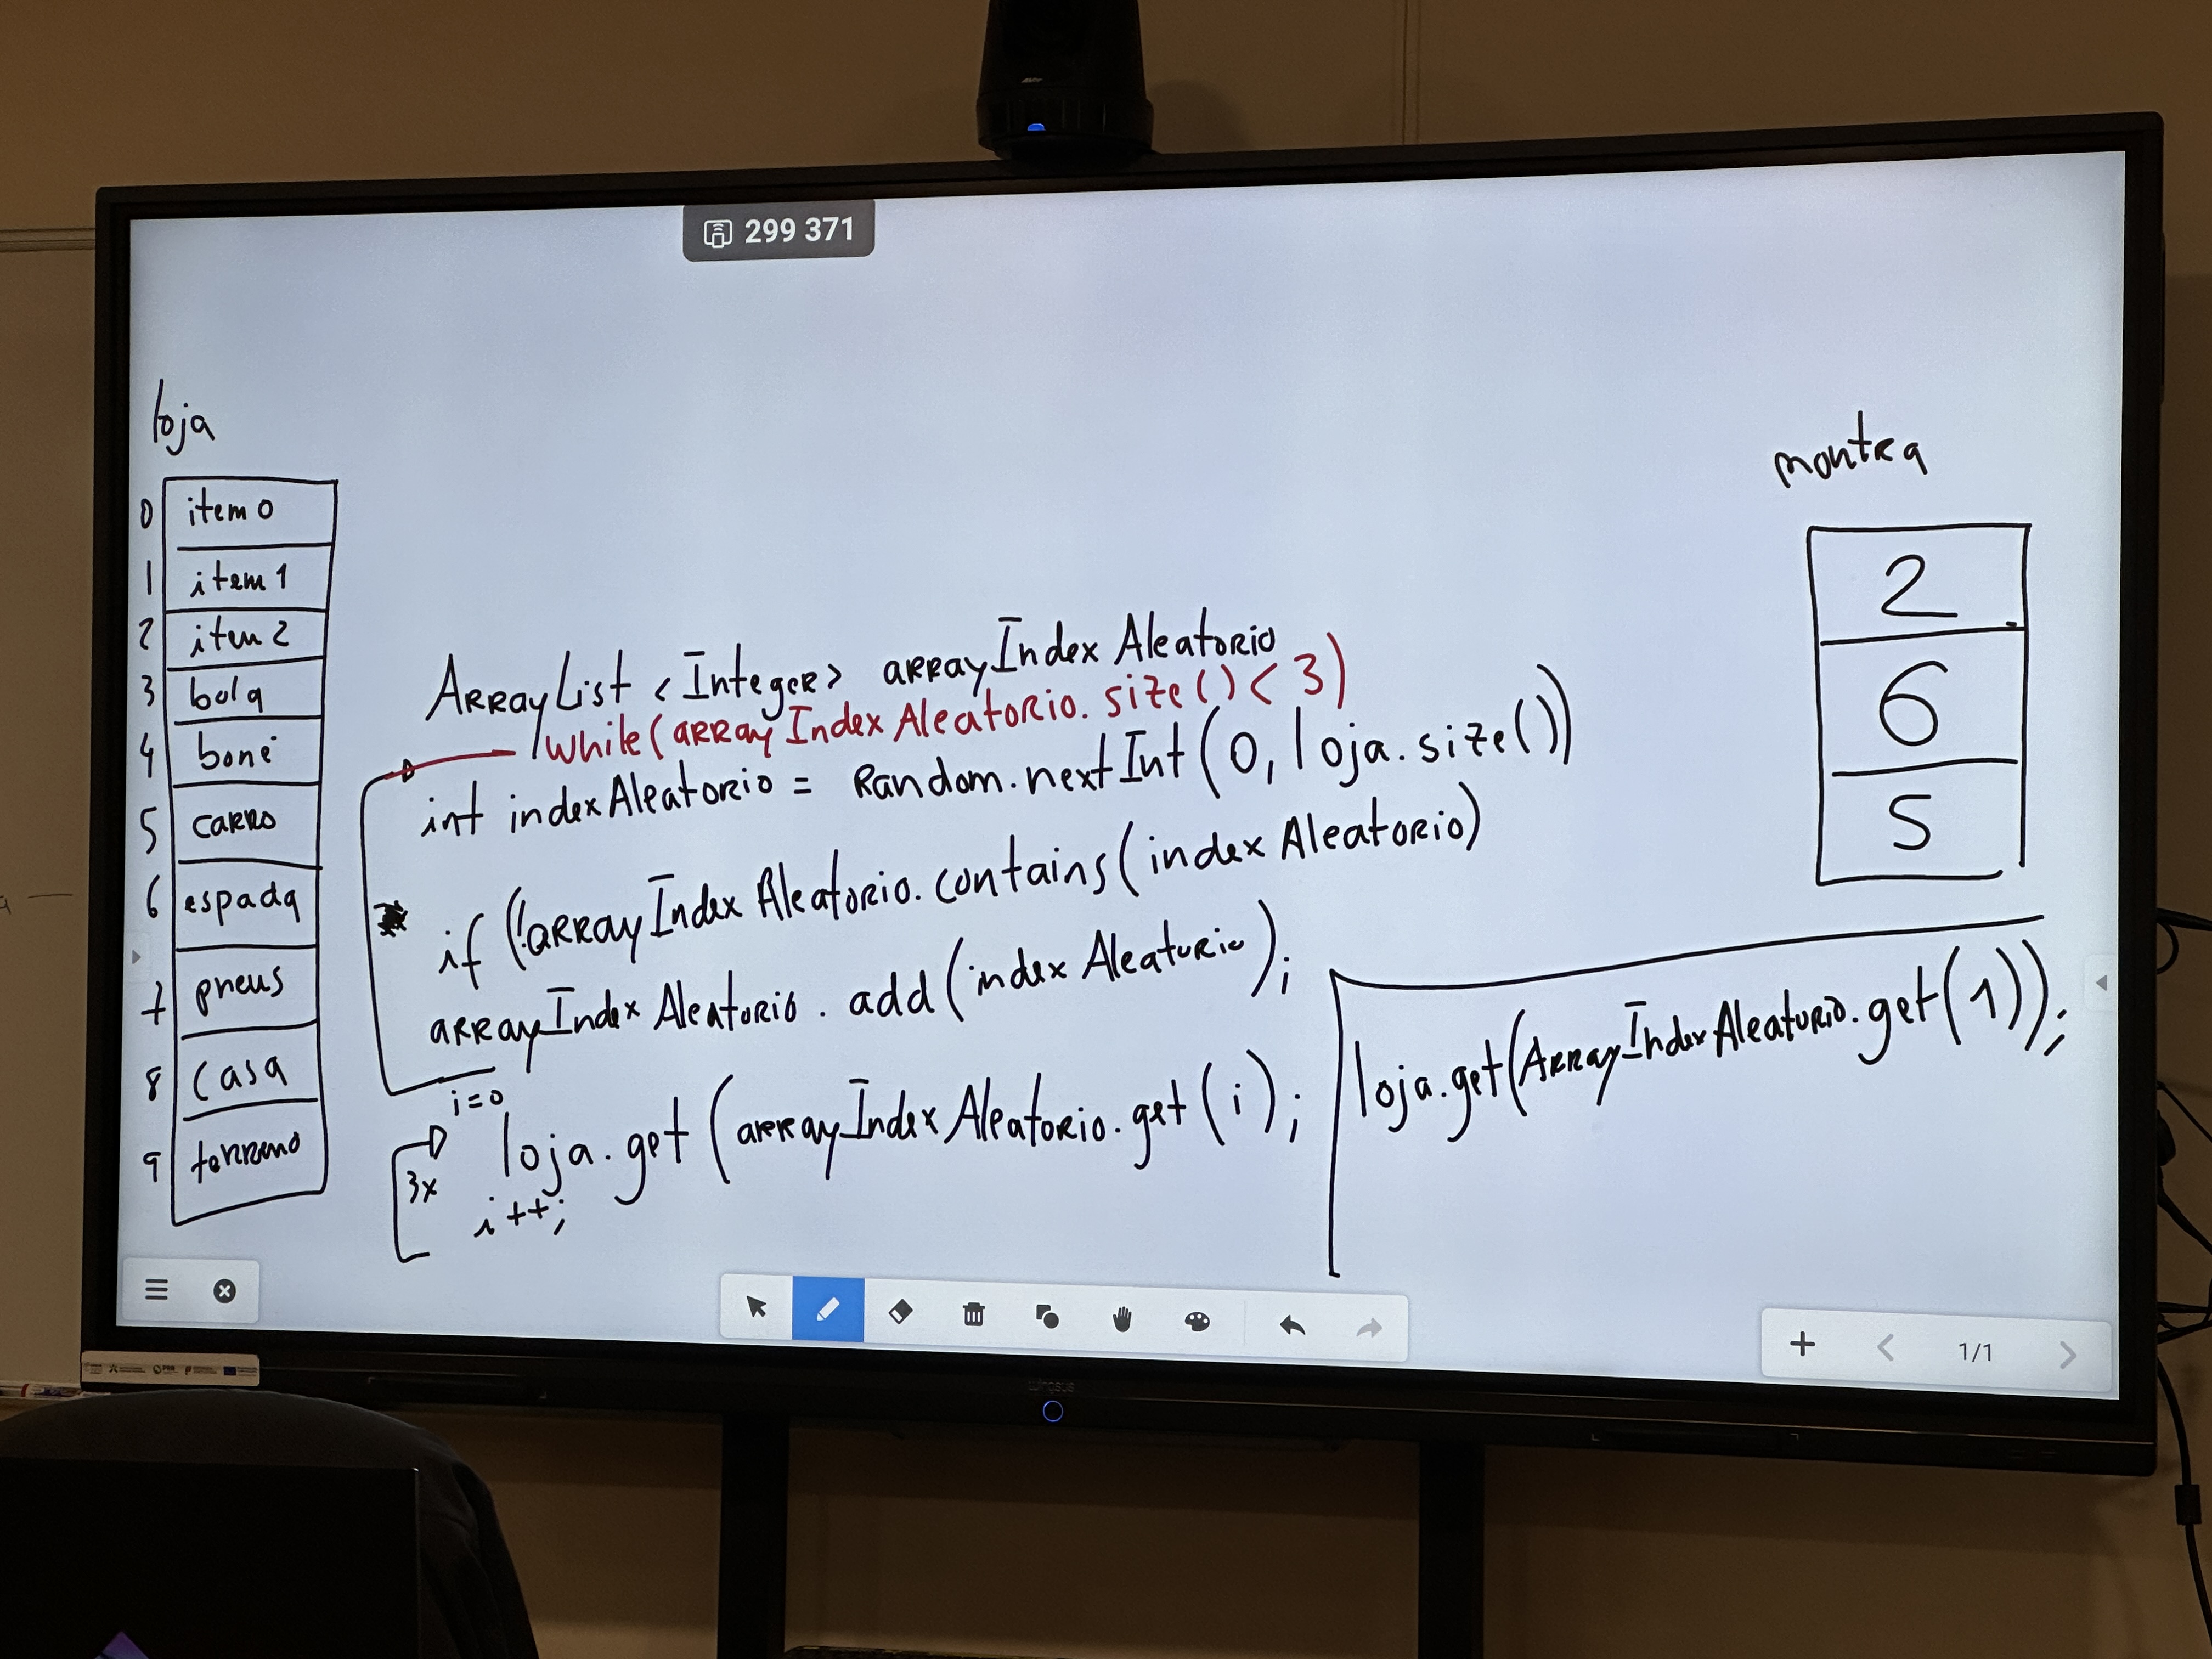 299 371
loja
0 item 0
1 item 1
2 item 2
3 bola
4 boné
5 carro
6 espada
7 pneus
8 casa
9 terreno
ArrayList <Integer> arrayIndexAleatorio
while(arrayIndexAleatorio.size() < 3)
int indexAleatorio = Random.nextInt(0, loja.size())
if (!arrayIndexAleatorio.contains(indexAleatorio)
arrayIndexAleatorio.add(indexAleatorio);
i=0
loja.get(arrayIndexAleatorio.get(i);
3x
i++;
montra
2
6
5
loja.get(ArrayIndexAleatorio.get(1));
1/1